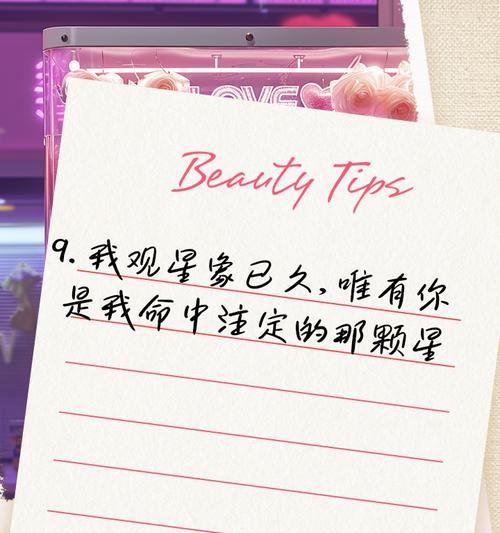 LOVE
Beauty Tips
9. 我观星象已久,唯有你
是我命中注定的那颗星